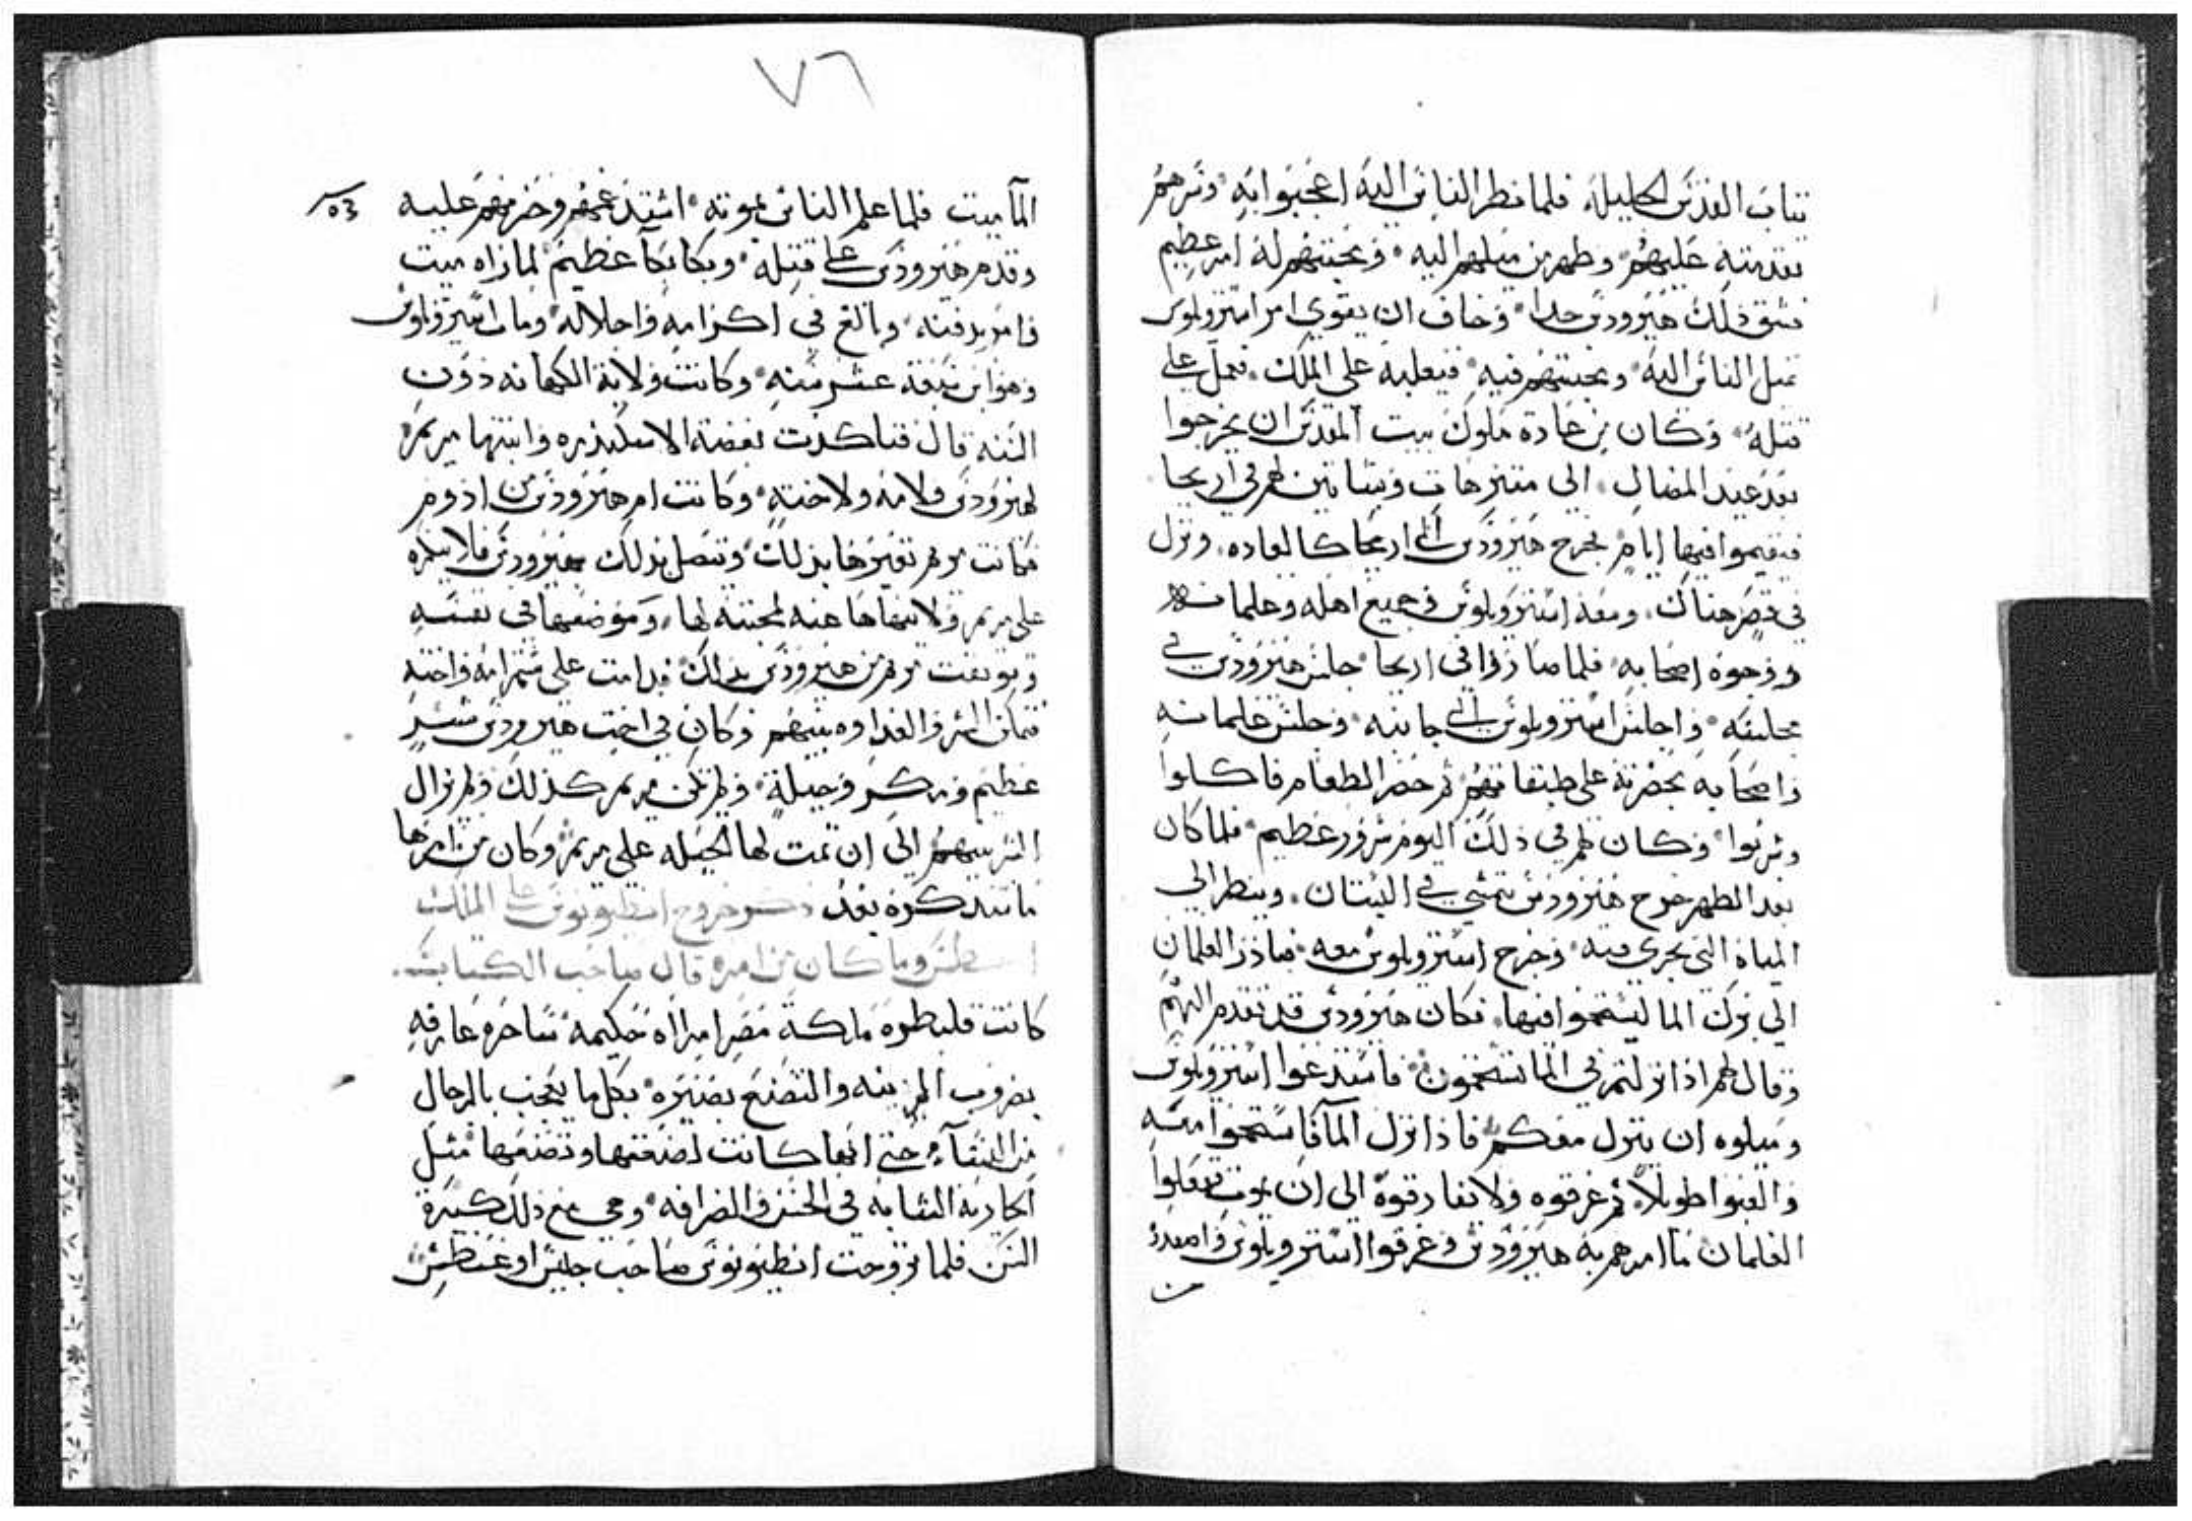 ثياب القدس الجليله فلما نظر الناس اليه اعجبوا به وسرهم
تقدمته عليهم وظهر من ميلهم اليه ومحبتهم له امر عظيم
فشق ذلك هيرودس جدا وخاف ان يقوي امر استروبلوس
بميل الناس اليه ومحبتهم فيه فيغلبه على الملك فعمل على
قتله وكان من عادة ملوك بيت المقدس ان يخرجوا
بعد عيد المضال الى متنزهات وبساتين لهم في اريحا
فيقيموا فيها ايام فخرج هيرودس الى اريحا كالعاده ونزل
في قصر هناك ومعه استروبلوس وجميع اهله وغلمانه
ووجوه اصحابه فلما صاروا في اريحا جلس هيرودس في
مجلسه واجلس استروبلوس الى جانبه وجلس غلمانه
واصحابه بحضرته على طبقاتهم ثم حضر الطعام فاكلوا
وشربوا وكان لهم في ذلك اليوم سرور عظيم فلما كان
بعد الظهر خرج هيرودس يتمشي في البستان وينظر الى
المياه التي تجري فيه وخرج استروبلوس معه فبادر الغلمان
الي برك الما ليستحموا فيها فكان هيرودس قد تقدم اليهم
وقال لهم اذا نزلتم في الما تستحمون فاستدعوا استروبلوس
وسلوه ان ينزل معكم فاذا نزل المآ فاستحموا معه
والعبوا طويلاً ثم غرقوه ولا تفارقوه الى ان يموت ففعلوا
الغلمان ما امرهم به هيرودس وغرقوا استروبلوس واصعدوه
من
٧٦
٥٣
المآ ميت فلما علم الناس بموته اشتد غمهم وحزنهم عليه
وندم هيرودس على قتله وبكا بكآ عظيم لما راه ميت
وامر بدفنه وبالغ في اكرامه واجلاله ومات استروبلوس
وهو ابن سبعة عشر سنه وكانت ولاية الكهانه دون
السنه قال فتاكدت بغضة الاسكندره وابنتها مريم
لهيرودس ولامه ولاخته وكانت ام هيرودس من ادوم
فكانت مريم تعيرها بذلك وتتصل بذلك بهيرودس فلا ينكره
على مريم ولا ينهاها عنه لمحبته لها وموضعها في نفسه
وتوثقت مريم من هيرودس بذلك فدامت على شتم امه واخته
فتمكن الشر والعداوه بينهم وكان في اخت هيرودس شر
عظيم ومكر وحيله ولم تكن مريم كذلك ولم يزال
الشر بينهم الى ان تمت لها الحيله على مريم وكان من امرها
ما سنذكره بعد ذكر خروج انطيونوس على الملك
اغسطس وما كان من امره قال صاحب الكتاب
كانت قلبطره ملكة مصر امراه حكيمه ساحره عارفه
بضروب الزينه والتصنع بصيره بكل ما يعجب بالرجال
من النسآء حتى انها كانت لصنعتها وتصنعها مثل
الجاريه الشابه في الحسن والضرافه وهي مع ذلك كبيرة
السن فلما تزوجت انطيونوس صاحب جيش اوغسطس